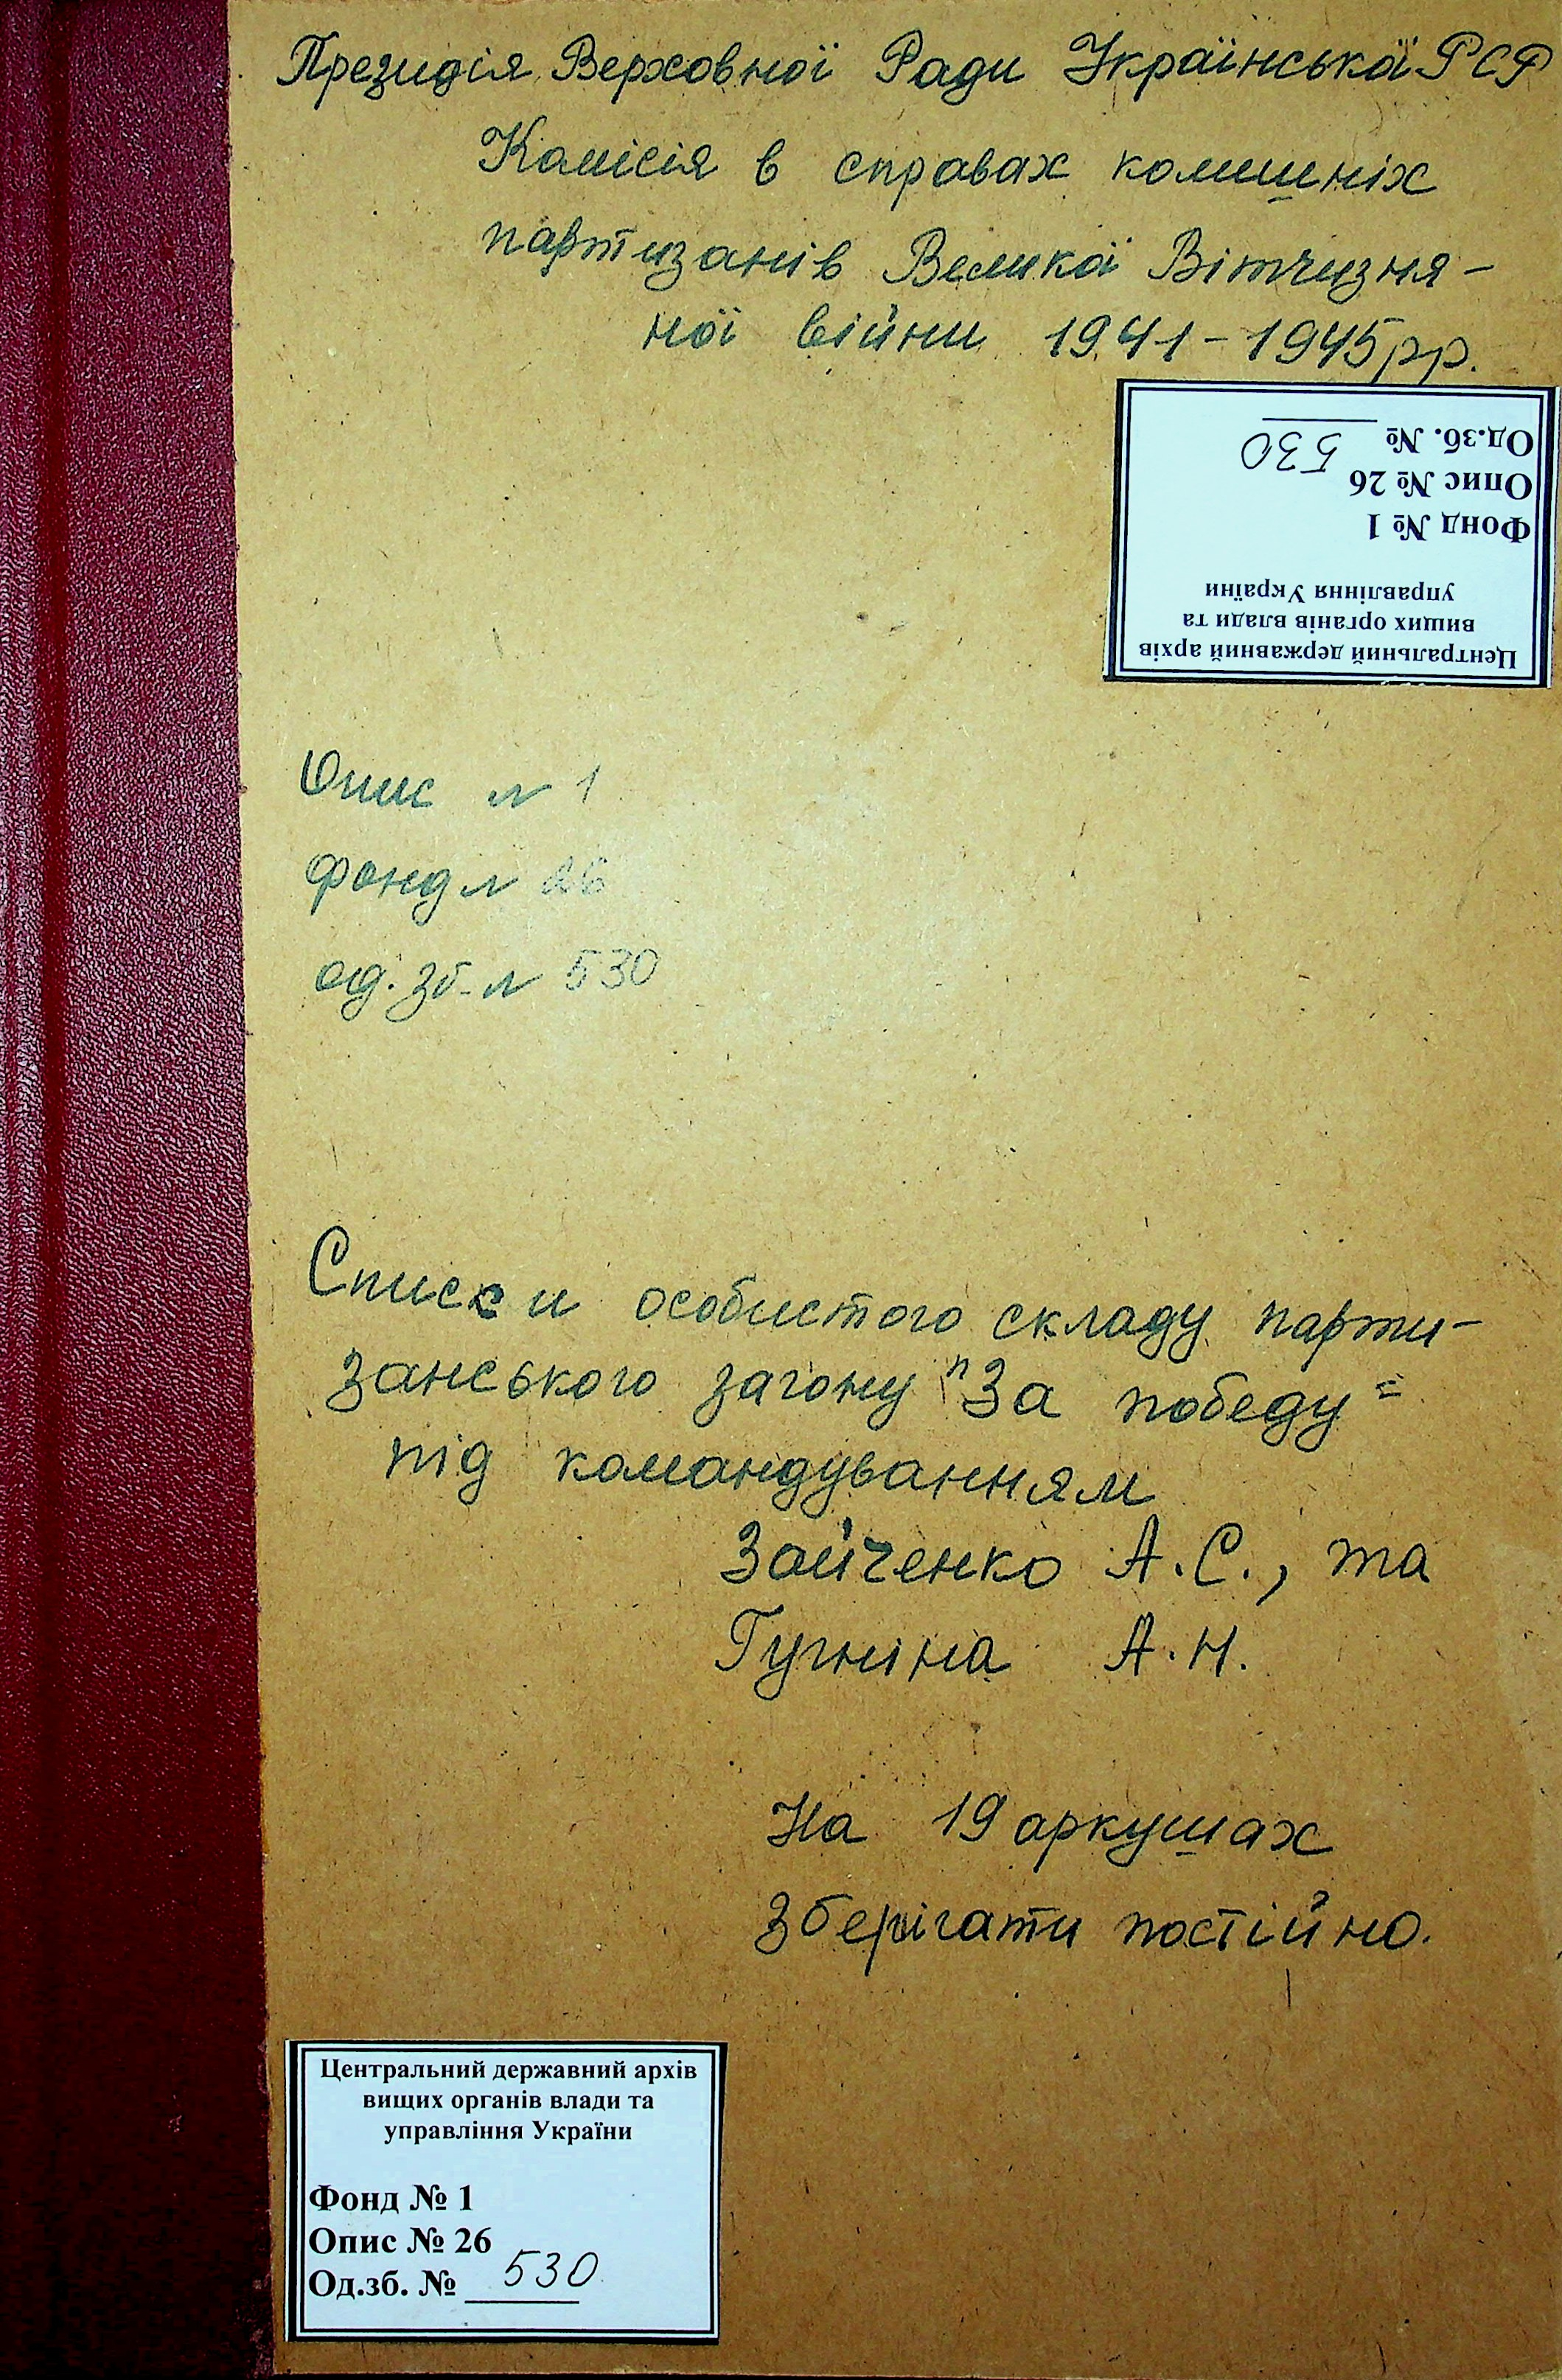 Президія Верховної Ради Української РСР
Комісія в справах колишніх
партизанів Великої Вітчизня-
ної війни 1941-1945 рр.
Центральний державний архів
вищих органів влади та
управління України
Фонд № 1
Опис № 26
Од.зб. № 530
Опис № 1
фонд № 26
од. зб. № 530
Списки особистого складу парти-
занського загону "За победу"
під командуванням
Зайченко А.С., та
Гугніна А.Н.
На 19 аркушах
Зберігати постійно.
Центральний державний архів
вищих органів влади та
управління України
Фонд № 1
Опис № 26
Од.зб. № 530